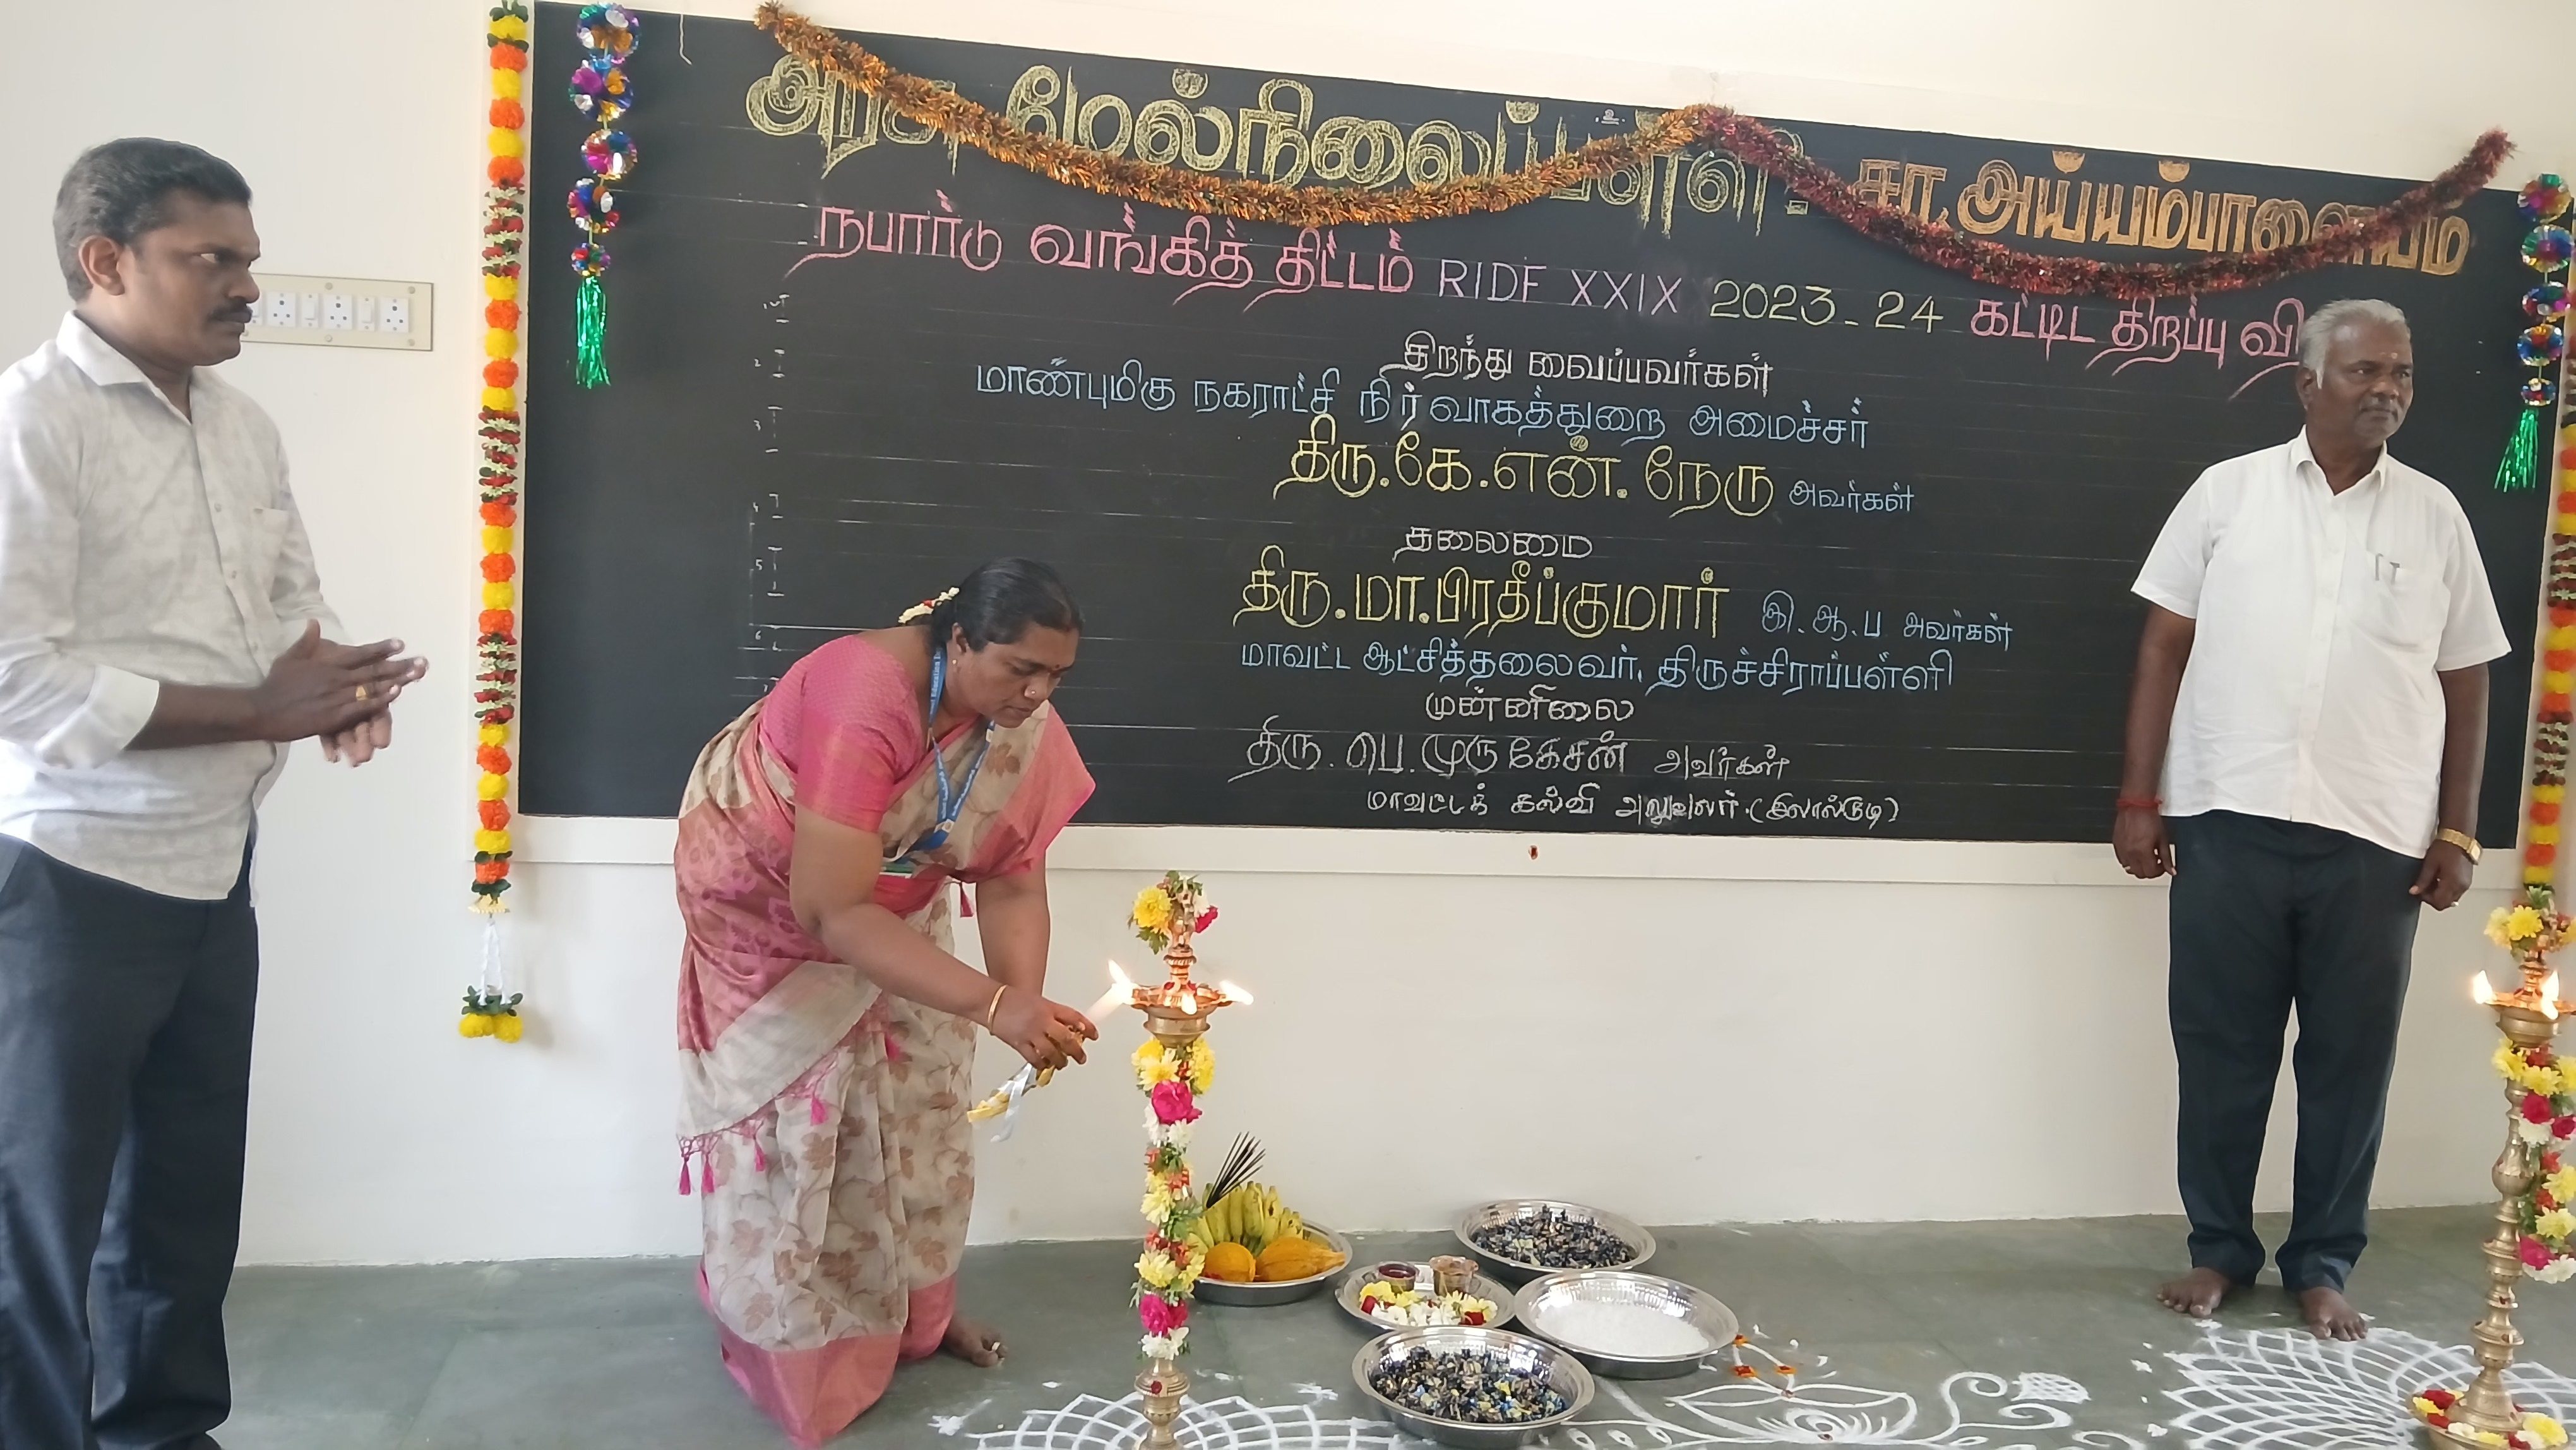 உ
அரசு மேல்நிலைப்பள்ளி. ச. அய்யம்பாளையம்
நபார்டு வங்கித் திட்டம் RIDF XXIX 2023-24 கட்டிட திறப்பு வி
திறந்து வைப்பவர்கள்
மாண்புமிகு நகராட்சி நிர்வாகத்துறை அமைச்சர்
திரு.கே.என்.நேரு அவர்கள்
தலைமை
திரு.மா.பிரதீப்குமார் இ.ஆ.ப அவர்கள்
மாவட்ட ஆட்சித்தலைவர், திருச்சிராப்பள்ளி
முன்னிலை
திரு. பெ. முருகேசன் அவர்கள்
மாவட்டக் கல்வி அலுவலர்.(இலால்குடி)